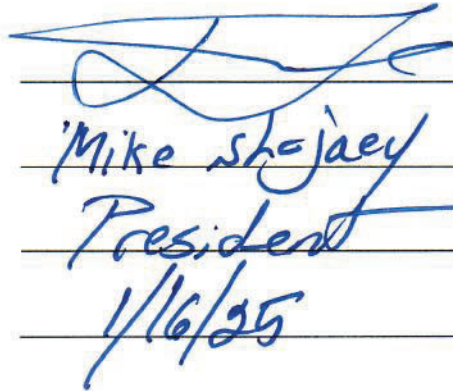 Mike Shojaey
President
1/16/25